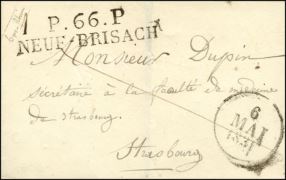 P. 66. P
NEUF-BRISACH
Monsieur Dupin
secrétaire à la faculté de médecine
de strasbourg
Strasbourg
6
MAI